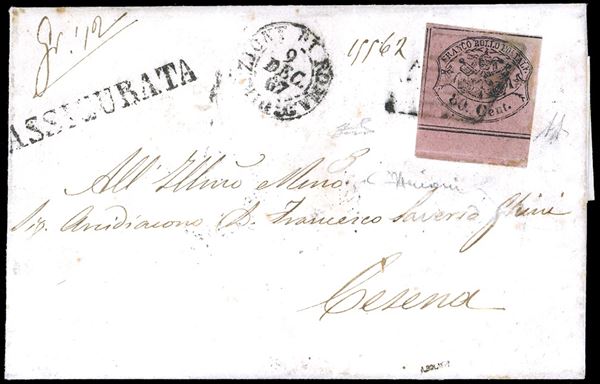 Gr: 12
ASSICURATA
9
DEC.
67
15562
FRANCO BOLLO POSTALE
80 Cent.
All' Illmo Mino
Sig. Arcidiacono D. Francesco Saverio Ghini
Cesena